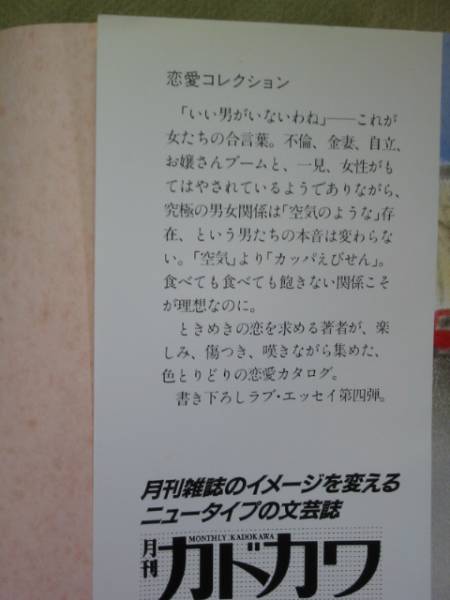 恋愛コレクション
「いい男がいないわね」――これが
女たちの合言葉。不倫、金妻、自立、
お嬢さんブームと、一見、女性がも
てはやされているようでありながら、
究極の男女関係は「空気のような」存
在、という男たちの本音は変わらな
い。「空気」より「カッパえびせん」。
食べても食べても飽きない関係こそ
が理想なのに。
ときめきの恋を求める著者が、楽
しみ、傷つき、嘆きながら集めた、
色とりどりの恋愛カタログ。
書き下ろしラブ・エッセイ第四弾。
月刊雑誌のイメージを変える
ニュータイプの文芸誌
MONTHLY KADOKAWA
月刊カドカワ